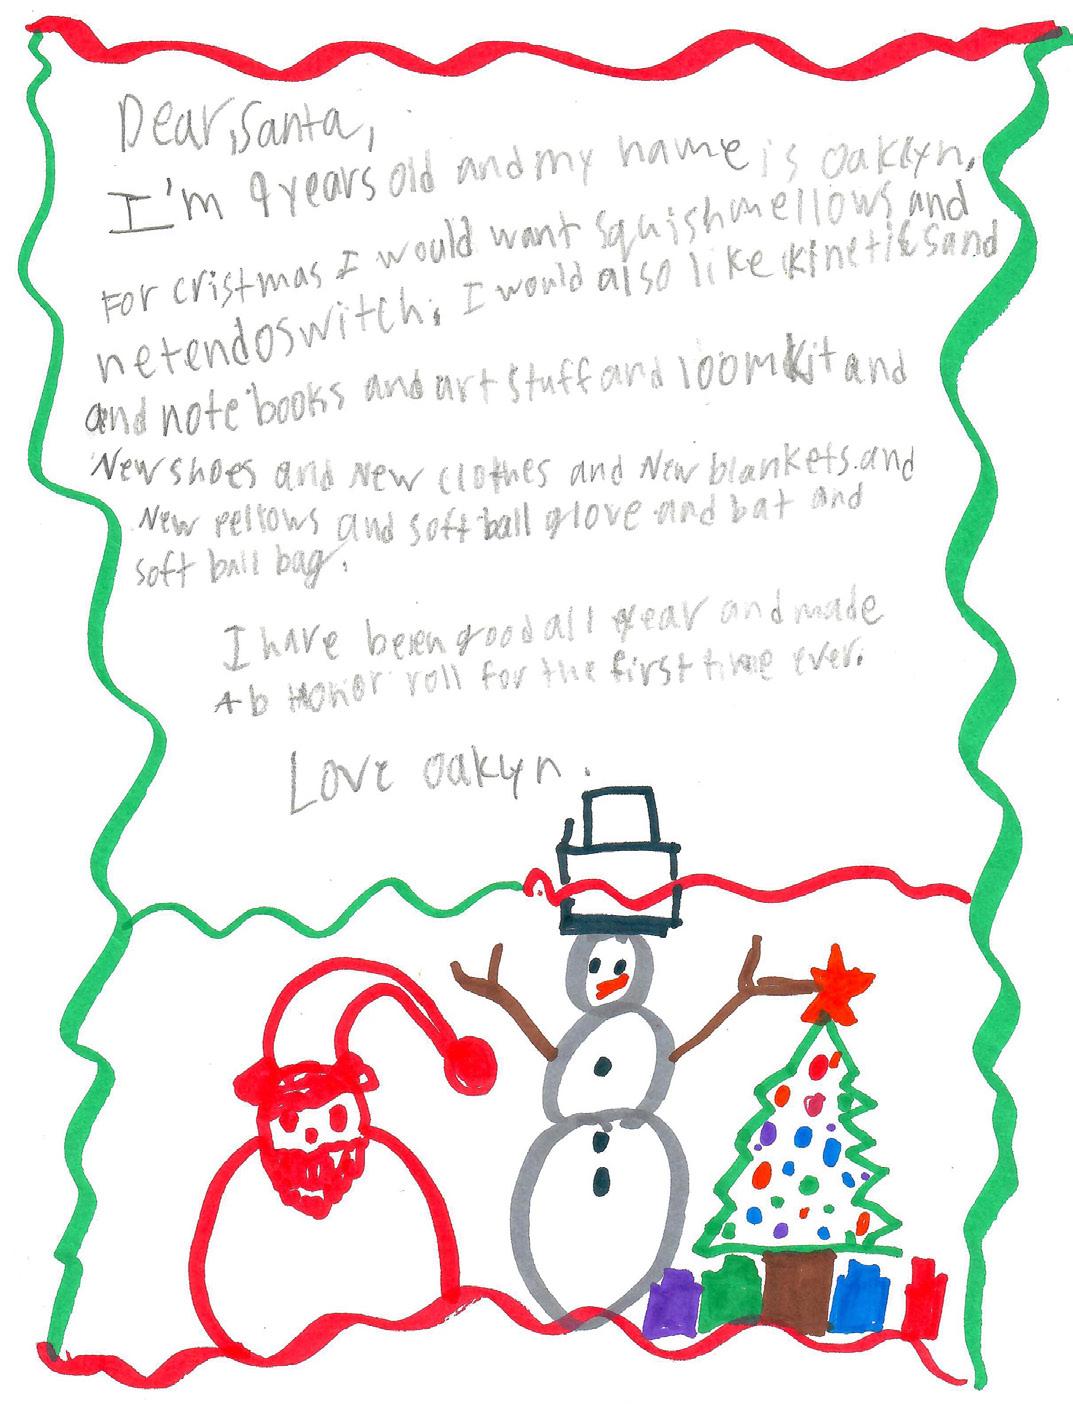 Dear, Santa,
I'm 9 years old and my name is Oaklyn.
For cristmas I would want squishmellows and
netendo switch. I would also like kinetic sand
and note books and art stuff and loom kit and
New shoes and New clothes and New blankets. and
New pellows and soft ball glove and bat and
soft ball bag.
I have been good all year and made
Ab Honor roll for the first time ever.
Love Oaklyn.